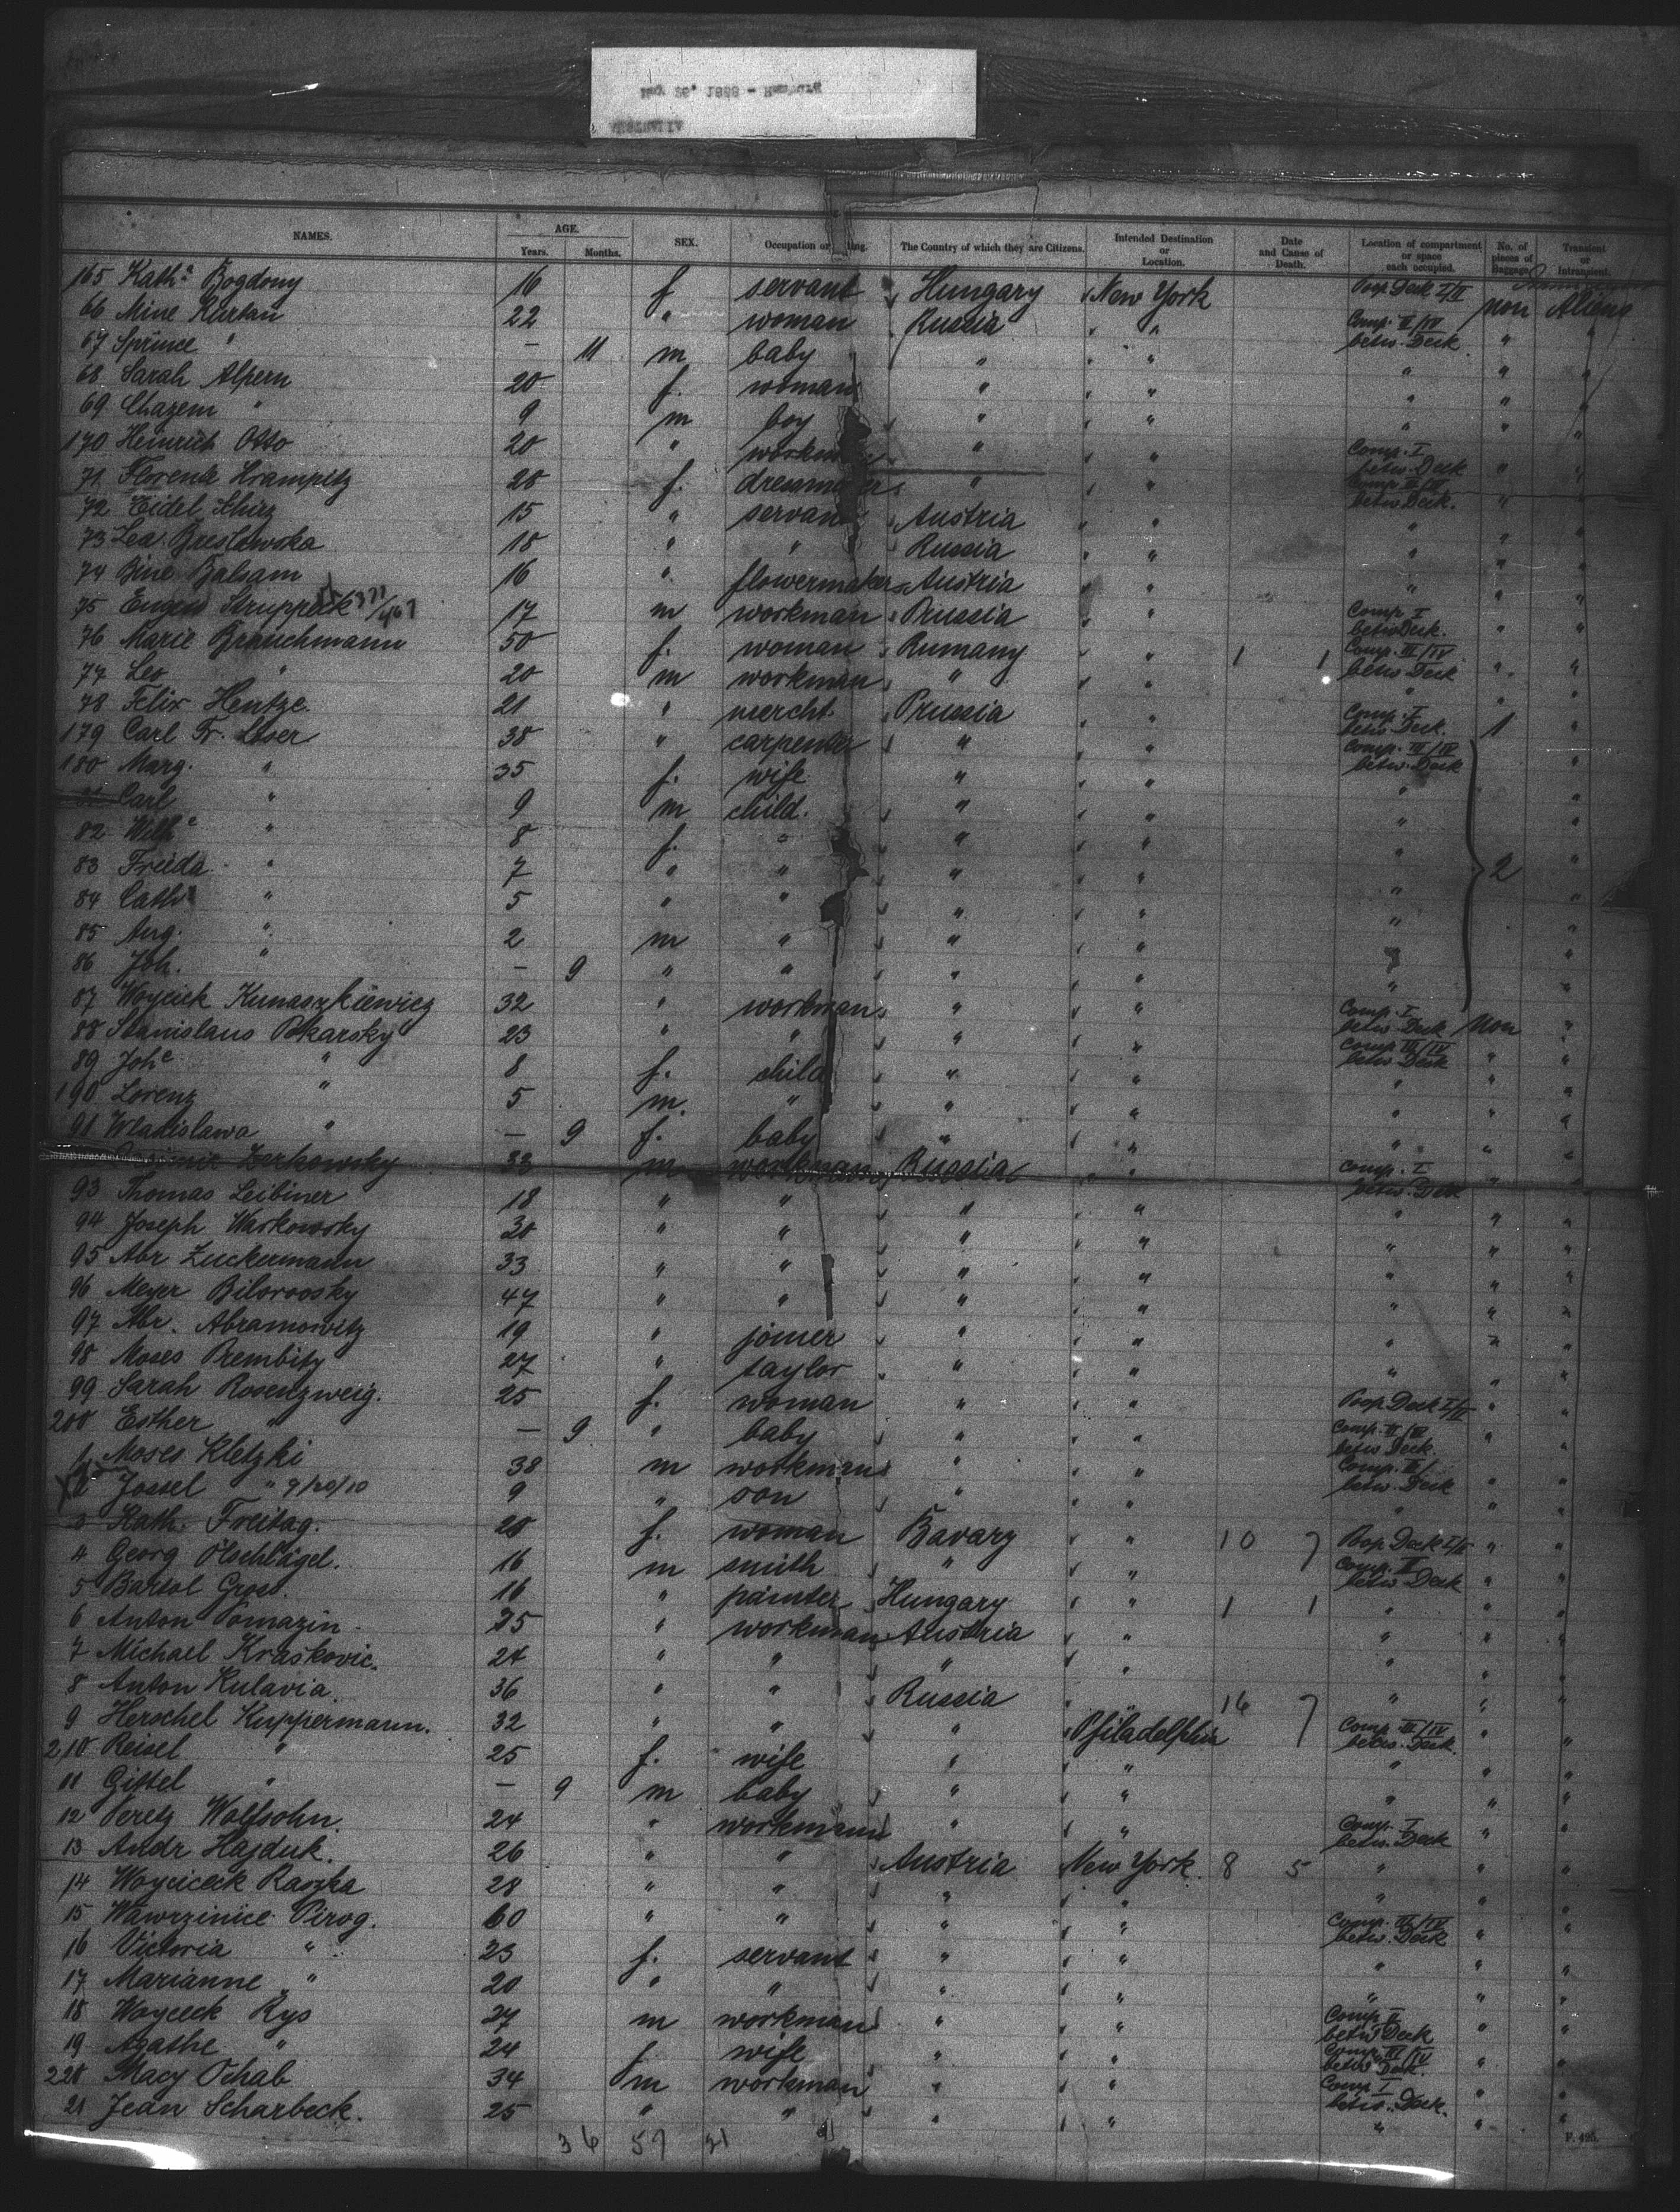 NAMES. AGE. Years. Months. SEX. Occupation or The Country of which they are Citizens. Intended Destination or Location. Date and Cause of Death. Location of compartment or space each occupied. No. of pieces of Baggage. Transient or Intransient.
165 Kath.a Bogdony 16 f servant Hungary New York Poop Deck I/II non Aliens
66 Mine Kartan 22 " woman Russia " " Comp. III/IV betw. Deck " "
67 Sprince " — 11 m baby " " " " "
68 Sarah Alpern 20 f. woman " " " " "
69 Chazem " 9 m boy " " " " "
170 Heinrich Otto 20 " workman " " Comp. I betw. Deck " "
71 Florend Krampitz 20 f. dressmaker " " Comp III/IV betw. Deck. " "
72 Eidel Schirz 15 " servant Austria " " " "
73 Lea Breslowska 18 " " Russia " " " "
74 Bine Balsam 16 " flowermaker Austria " " " "
75 Eugen Struppeck 17 m workman Prussia " Comp I betw Deck. " "
76 Marie Brauchmann 50 f. woman Rumany " 1 1 Comp. III/IV betw Deck " "
77 Leo " 20 m workman " " " " "
78 Felix Hentze. 21 " mercht. Prussia " Comp. I betw. Deck. 1 "
179 Carl Fr. Loser 38 " carpenter " " Comp. III/IV betw. Deck "
180 Marg. " 35 f. wife " " " "
Carl " 9 m child. " " " "
82 Wilh.e " 8 f. " " " " "
83 Frieda " 7 " " " " " 2 "
84 Cath " 5 " " " " " "
85 Aug. " 2 m " " " " "
86 Joh. " — 9 " " " " " "
87 Woycick Kunaszkiewicz 32 " workman " " Comp. I betw Deck Non "
88 Stanislaus Pokarsky 23 " " " " Comp III/IV betw. Deck " "
89 Joh.e " 8 f. child " " " " "
190 Lorenz " 5 m. " " " " " "
91 Wladislawa " — 9 f. baby " " " " "
Zerkowsky 32 m workman Russia " Comp. I betw. Deck " "
93 Thomas Leibiner 18 " " " " " " "
94 Joseph Warkowsky 30 " " " " " " "
95 Abr Zuckermann 33 " " " " " " "
96 Meyer Biloroosky 47 " " " " " " "
97 Abr. Abramowitz 19 " joiner " " " " "
98 Moses Prembitz 27 " taylor " " " " "
99 Sarah Rosenzweig. 25 f. woman " " Poop Deck I/II " "
200 Esther " — 9 " baby " " Comp. III/IV betw Deck. " "
1 Moses Kletzki 38 m workman " " Comp. II/ betw. Deck " "
2 Jossel " 9/20/10 9 " son " " " " "
3 Kath. Freitag. 20 f. woman Bavary " 10 7 Poop Deck I/II " "
4 Georg Ölschlägel. 16 m smith " " Comp. II betw Deck " "
5 Bartol Gross. 16 " painter Hungary " 1 1 " " "
6 Anton Tomazin. 25 " workman Austria " " " "
7 Michael Kraskovic. 24 " " " " " " "
8 Anton Kulavia. 36 " " Russia " 16 7 " " "
9 Herschel Kuppermann. 32 " " " Philadelphia Comp III/IV betw. Deck. " "
210 Reisel " 25 f. wife " " " " "
11 Gittel " — 9 m baby " " " " "
12 Peretz Wolfsohn. 24 " workman " " Comp. I betw. Deck " "
13 Andr Hajduk. 26 " " Austria New York 8 5 " " "
14 Woycicek Raszka 28 " " " " " " "
15 Wawrzinice Pirog. 60 " " " " Comp. III/IV betw. Deck " "
16 Victoria " 23 f. servant " " " " "
17 Marianne " 20 " " " " " " "
18 Woycieck Rys 27 m workman " " Comp II betw Deck " "
19 Agathe " 24 f wife " " Comp III/IV betw Deck. " "
220 Macy Ochab 34 m workman " " Comp I betw. Deck. " "
21 Jean Scharbeck. 25 " " " " " " "
36 57 21